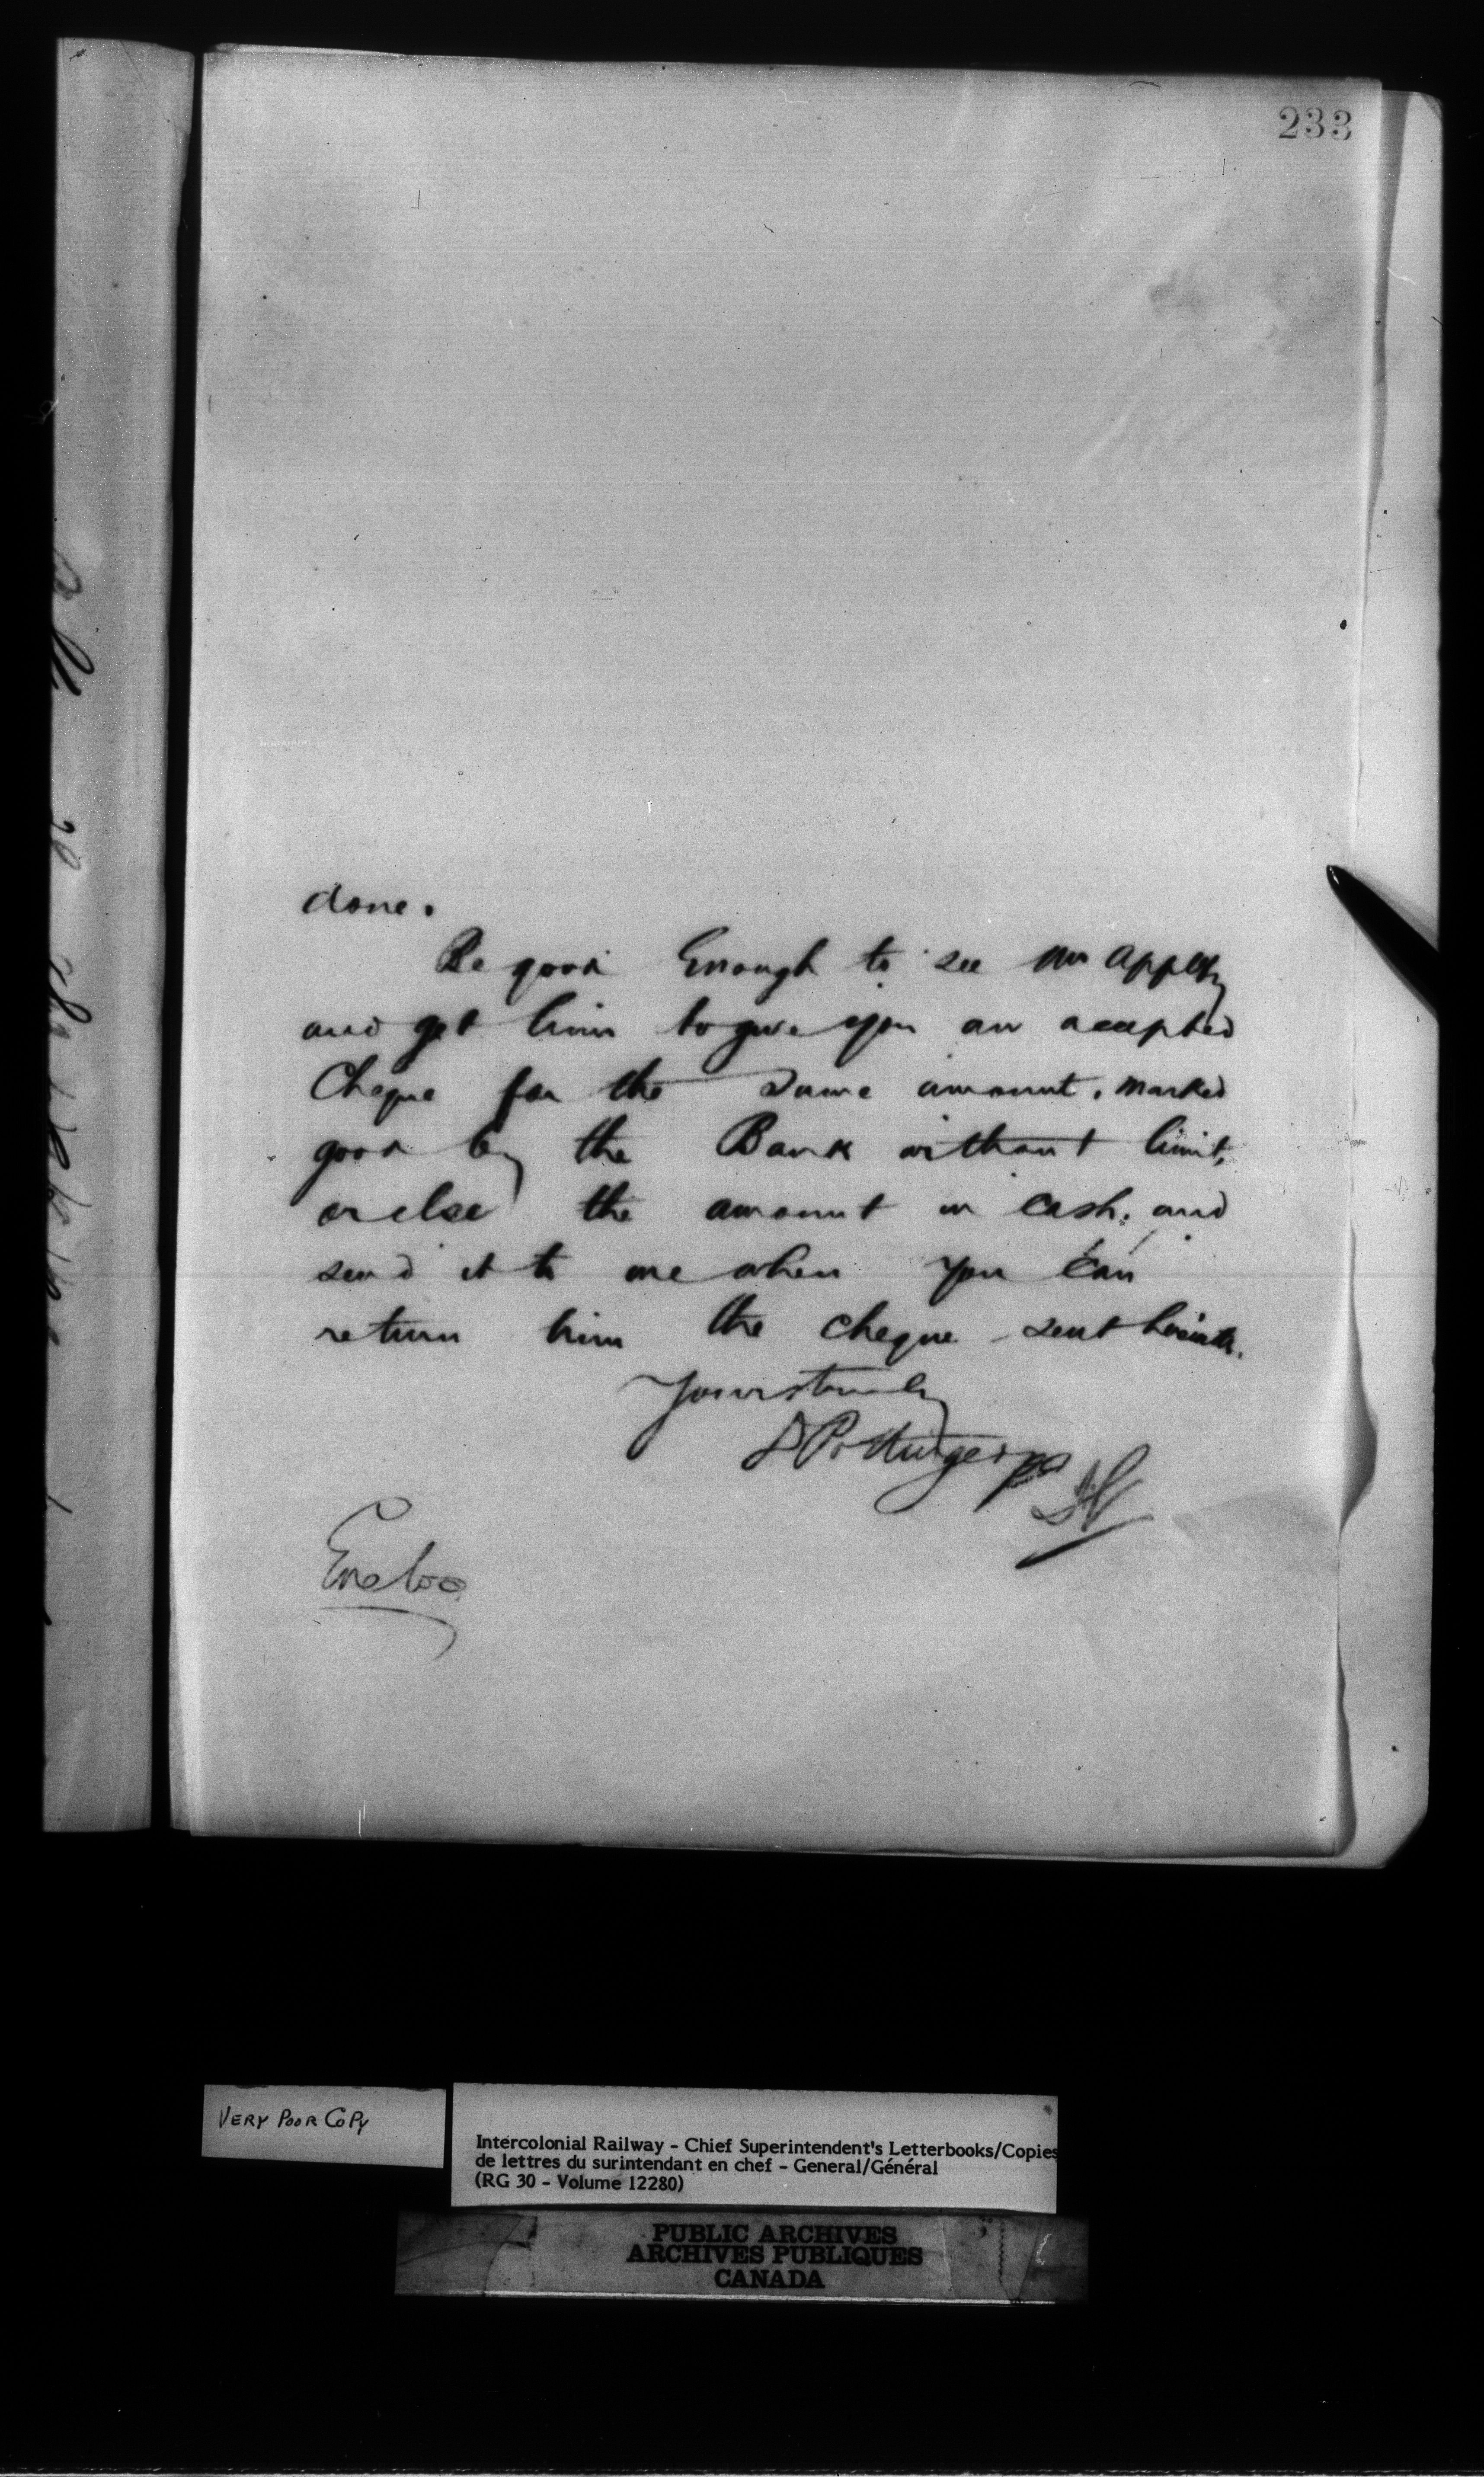 233
done.
Be good Enough to see Mr Appleby
and get him to give you an accepted
Cheque for the same amount, marked
good by the Bank without limit,
or else the amount in cash, and
send it to me when you can
return him the cheque sent herewith.
Yours truly
D Pottinger
Encloo
VERY POOR COPY
Intercolonial Railway - Chief Superintendent's Letterbooks/Copies
de lettres du surintendant en chef - General/Général
(RG 30 - Volume 12280)
PUBLIC ARCHIVES
ARCHIVES PUBLIQUES
CANADA